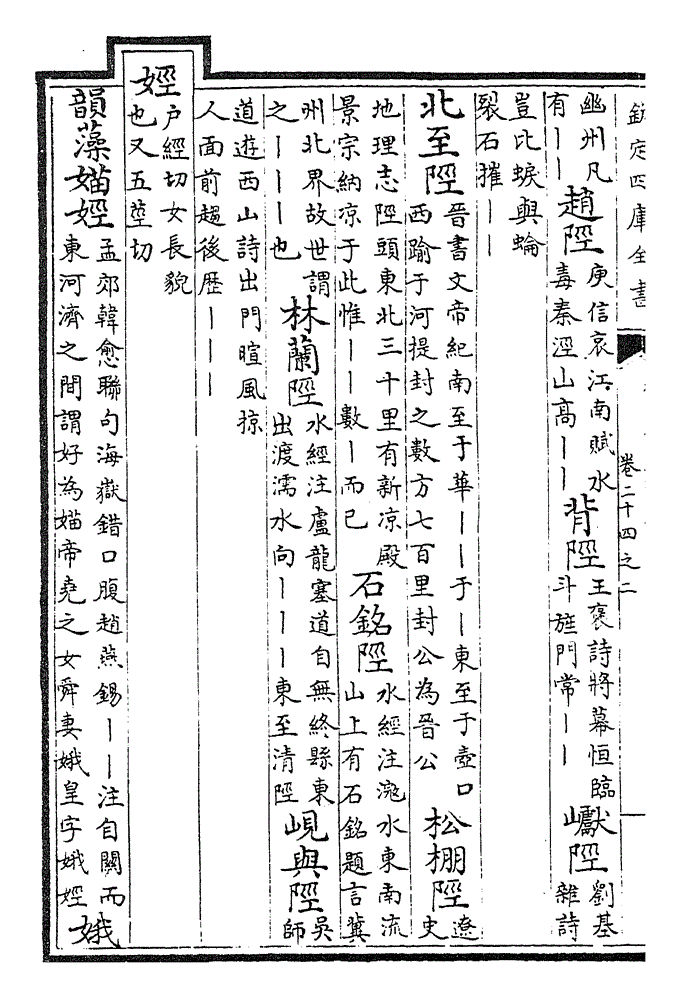 欽定四庫全書 卷二十四之二
幽州凡
有｜｜
趙陘
庾信哀江南賦水
毒秦涇山高｜｜
背陘
王褒詩將幕恒臨
斗旌門常｜｜
巘陘
劉基
雜詩
豈比蜧與蜦
裂石摧｜｜
北至陘
晉書文帝紀南至于華｜｜于｜東至于壺口
西踰于河提封之數方七百里封公為晉公
松棚陘
遼
史
地理志陘頭東北三十里有新凉殿
景宗納凉于此惟｜｜數｜而已
石銘陘
水經注滱水東南流
山上有石銘題言冀
州北界故世謂
之｜｜｜也
林蘭陘
水經注盧龍塞道自無終縣東
出渡濡水向｜｜｜東至清陘
峴與陘
吳
師
道遊西山詩出門暄風掠
人面前趨後歷｜｜｜
娙
户經切女長貌
也又五莖切
韻藻媌娙
孟郊韓愈聯句海嶽錯口腹趙燕錫｜｜注自關而
東河濟之間謂好為媌帝堯之女舜妻娥皇字娥娙
娥